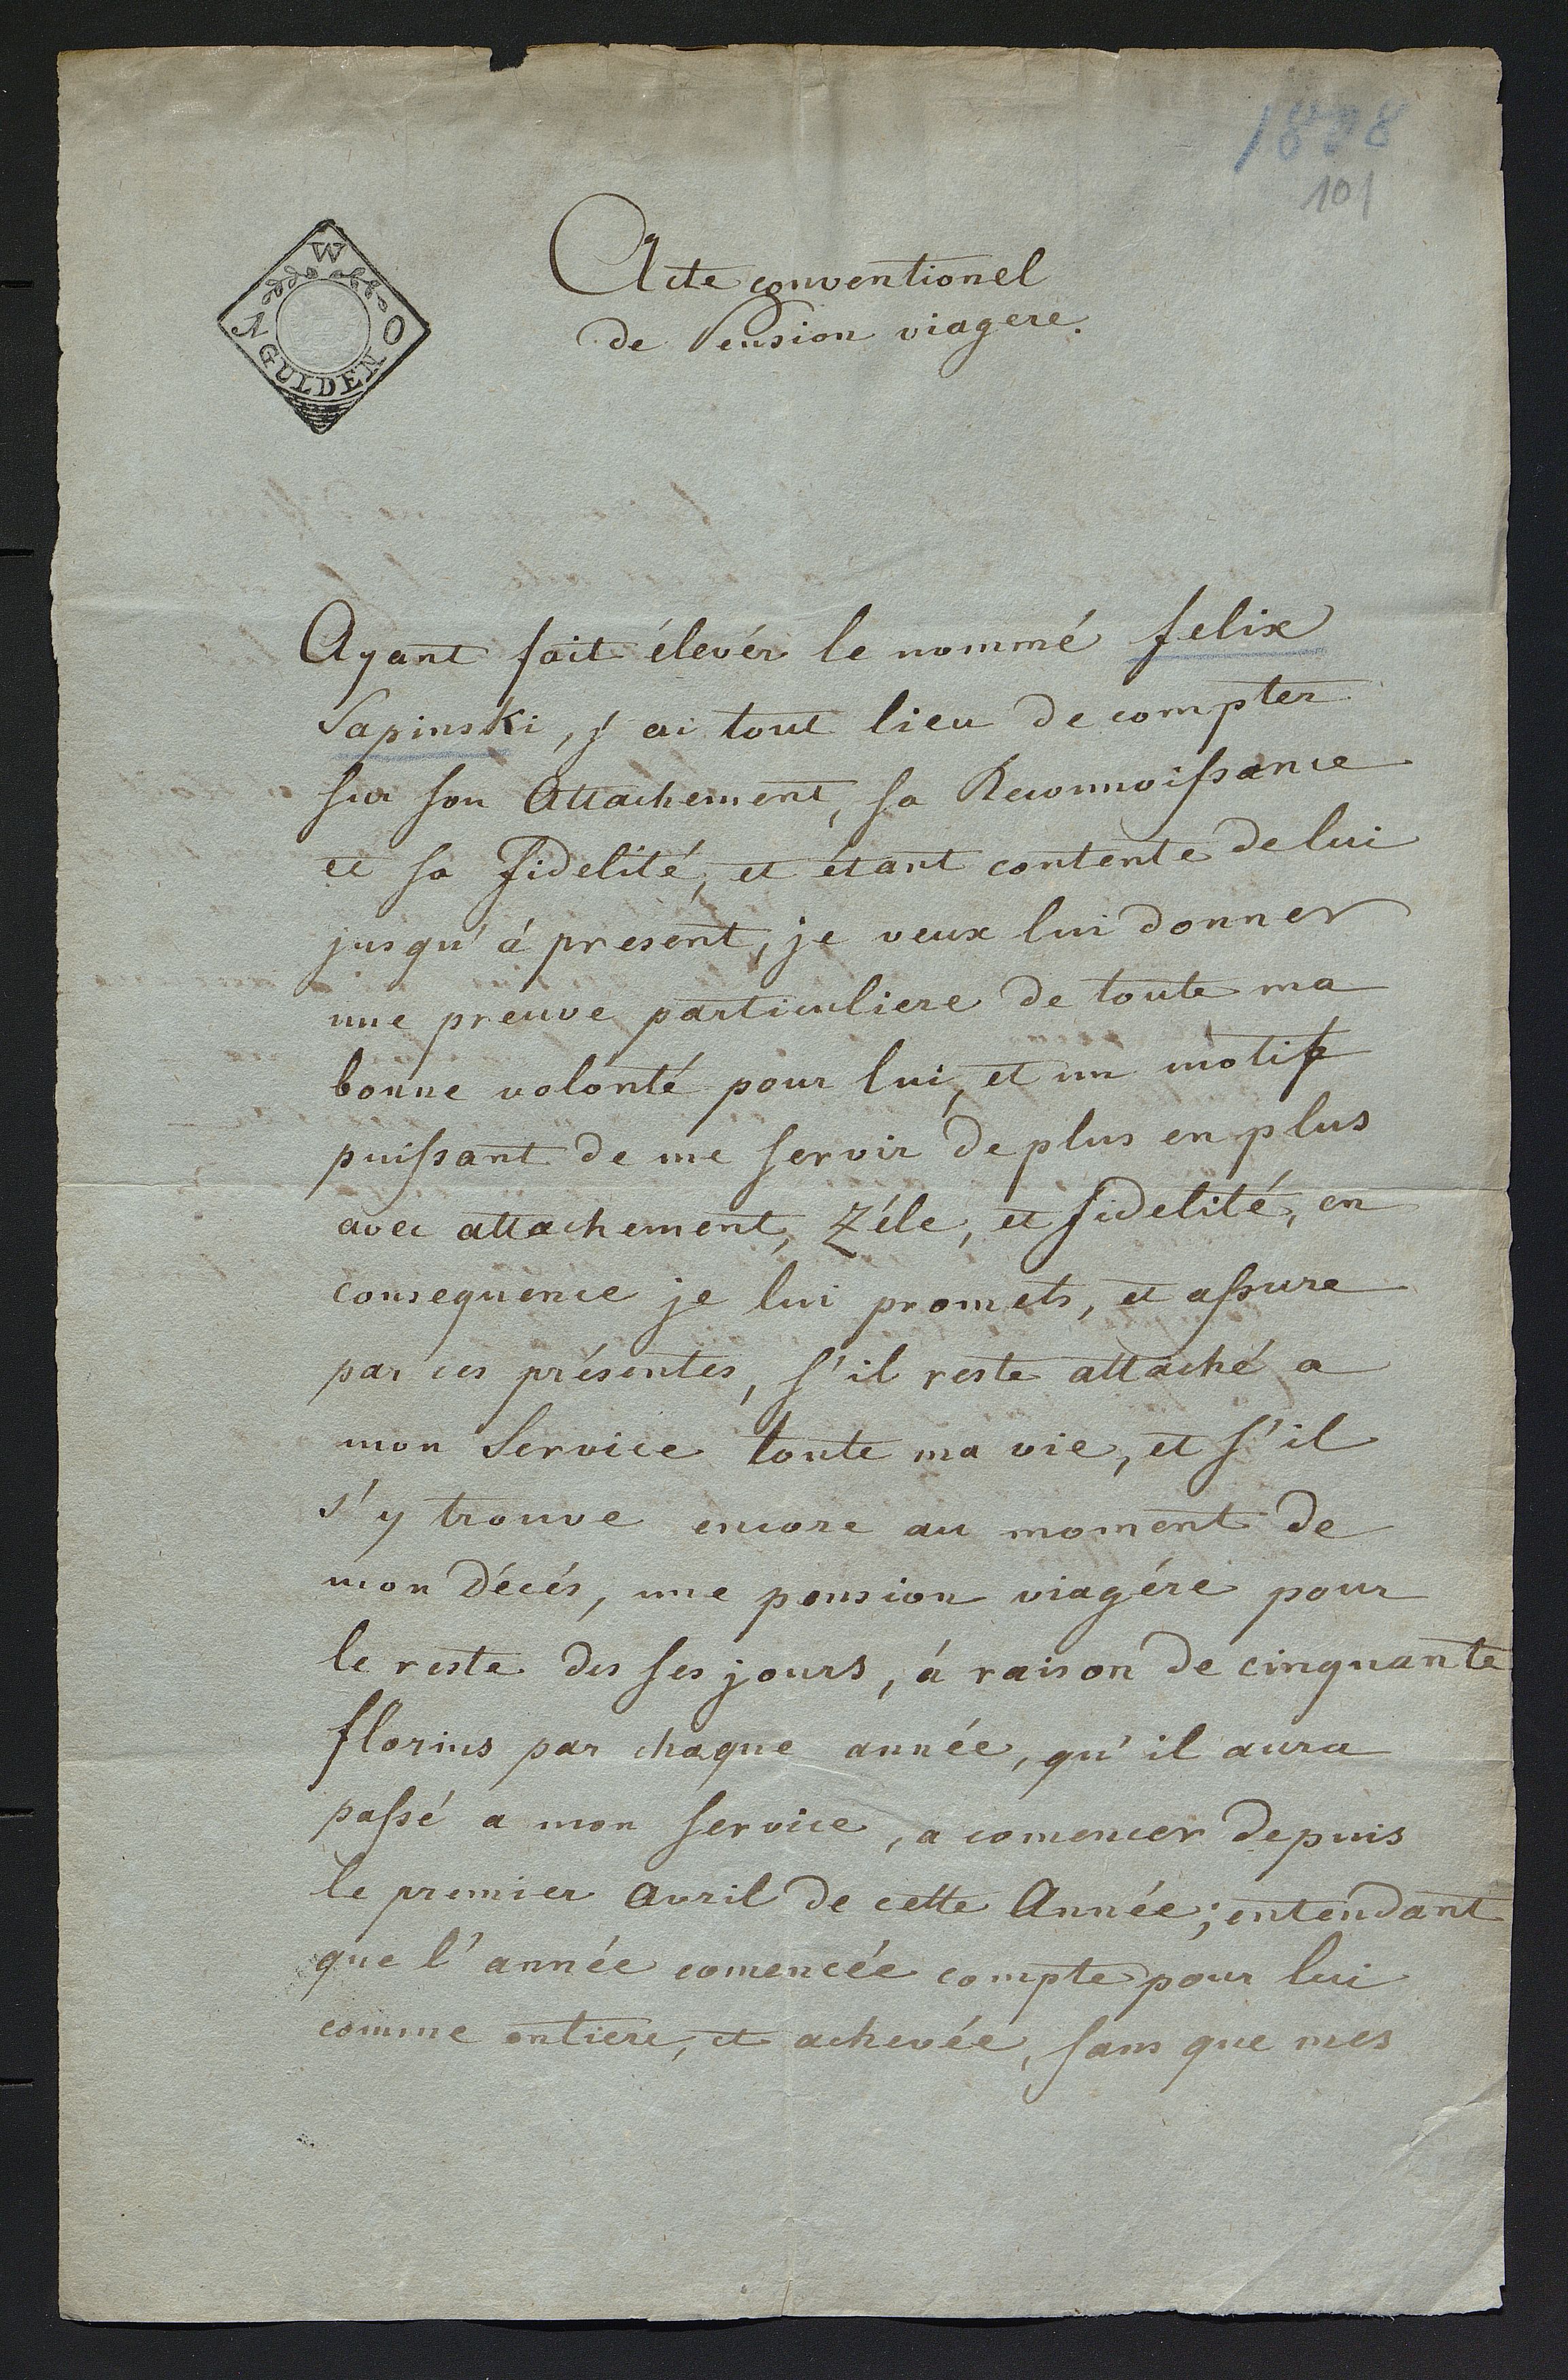 1888
101
W
N O
GULDEN
Acte conventionel
de Pension viagere.
Ayant fait élevér le nommé felix
Sapinski, j'ai tout lieu de compter
sur son Attachement, sa Reconnoissance
et sa Fidelité, et étant contente de lui
jusqu'á present, je veux lui donner
une preuve particuliere de toute ma
bonne volonté pour lui, et un motif
puissant de me servir de plus en plus
avec attachement, Zéle, et fidelité, en
consequence je lui promets, et assure
par ces présentes, s'il reste attaché a
mon Service toute ma vie, et s'il
s'y trouve encore au moment de
mon Décés, une pension viagére pour
le reste des ses jours, á raison de cinquante
florins par chaque année, qu'il aura
passé a mon service, a comencer depuis
le premier Avril de cette Année; entendant
que l'année comencée compte pour lui
comme entiere, et achevée, sans que mes